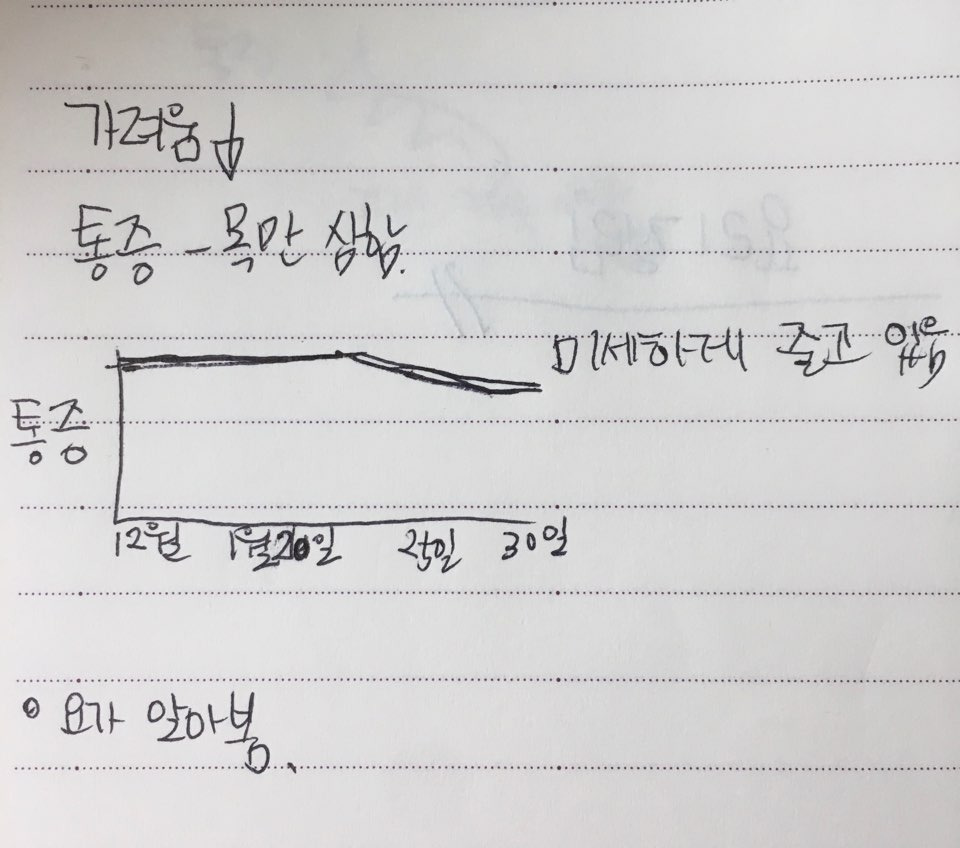 가려움 ↓
통증 - 목만 심함.
미세하게 줄고 있음
통증
12월 1월20일 25일 30일
• 요가 알아봄.